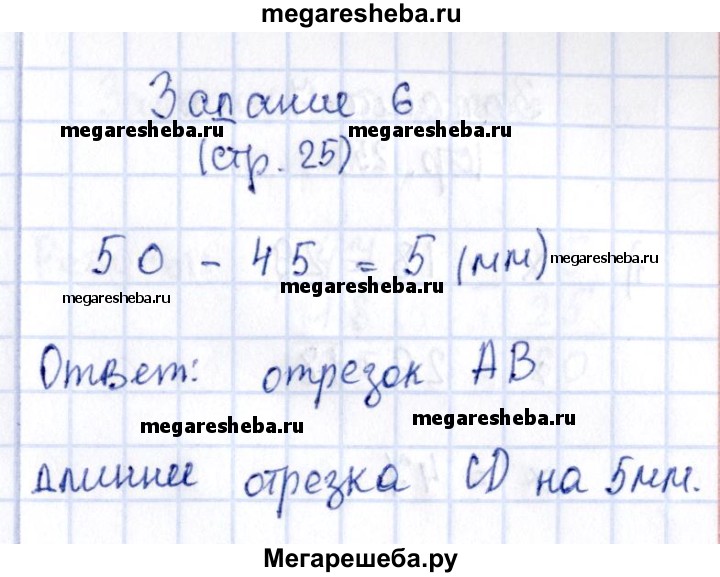 megaresheba.ru
Задание 6
megaresheba.ru megaresheba.ru
(стр. 25)
50 - 45 = 5 (мм) megaresheba.ru
megaresheba.ru megaresheba.ru
Ответ: отрезок AB
megaresheba.ru megaresheba.ru
длиннее отрезка CD на 5мм.
Мегарешеба.ру